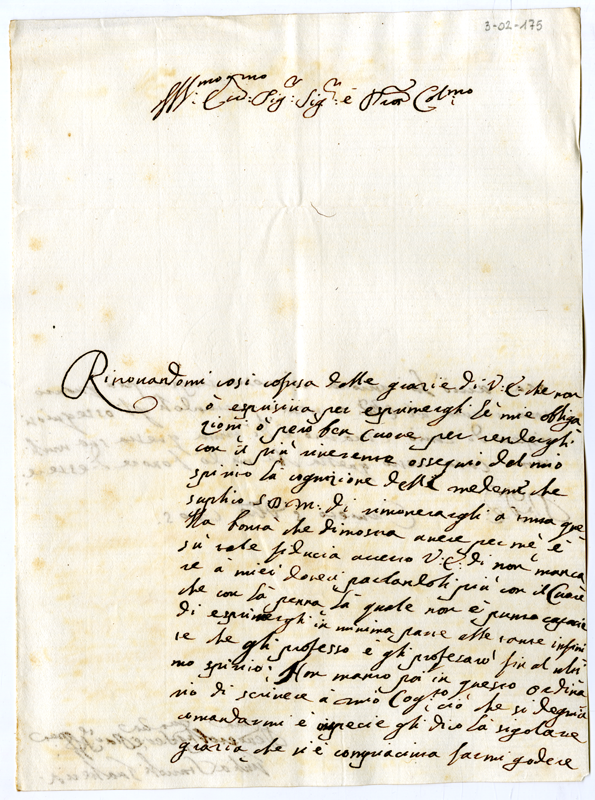 3-02-175
Ill:mo Ecc:mo Sig:r Sig:r e Pron Col:mo
Ritrovandomi cosi cofusa dalle grazie di V. E. che non
ò espresiva per esprimergli le mie obliga
zioni ò però ben Cuore per rendergli
con il più riverente ossequio del mio
spirito la cognizione delle medeme che
suplico S. D. M. di rimonerargli a tutta que
lla bontà che dimostra avere per me, è
sù tale fiducia accerto V. E. di non manca
re à miei doveri parlandoli più con il Cuore
che con la penna la quale non è punto capace
di esprimergli in minima parte alle tante infini
te che gli professo e gli profesarò fin al ulti
mo spirito; Non manco poi in questo ordina
rio di scrivere à mio Cog:to ciò che si degnia
comandarmi e inspecie gli dico la sigolare
grazia che si è compiaciuta farmi godere